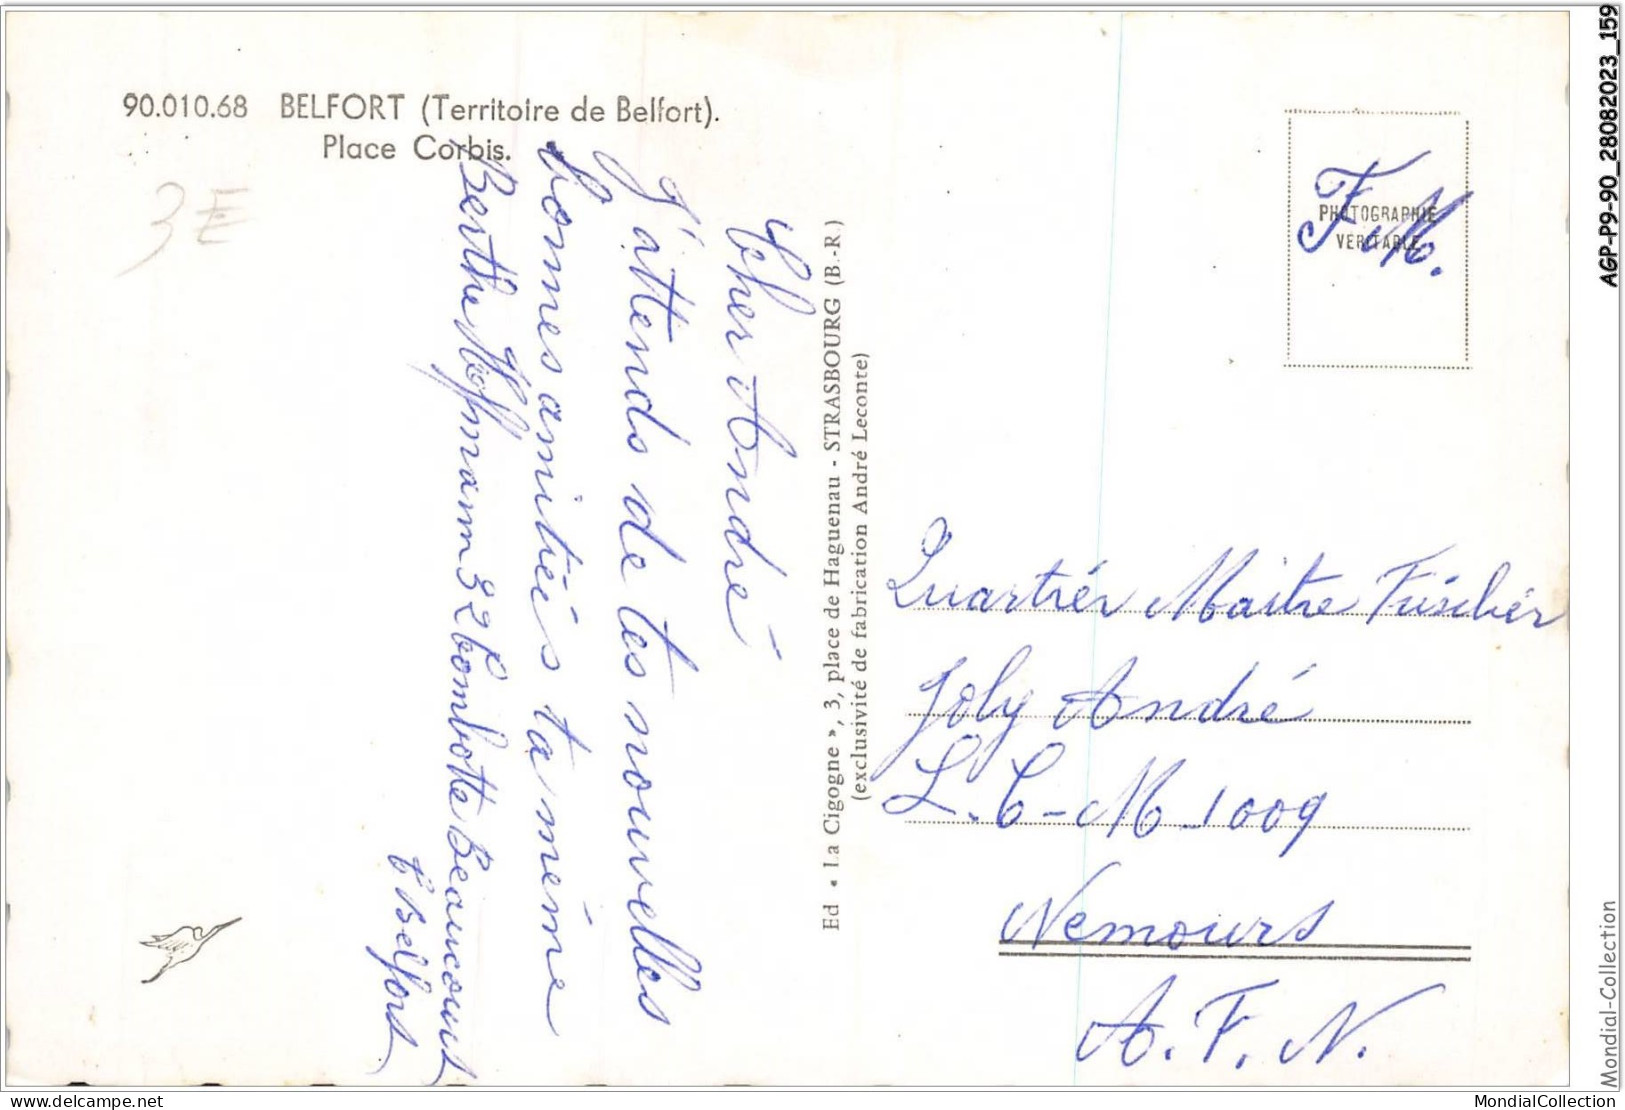 90.010.68 BELFORT (Territoire de Belfort).
Place Corbis.
3E
Cher André
J'attends de tes nouvelles
bonnes amitiés ta même
Berthe 32 R bombotte Beaucourt
T Belfort
Ed « La Cigogne », 3, place de Haguenau - STRASBOURG (B.-R.)
(exclusivité de fabrication André Leconte)
PHOTOGRAPHIE
VERITABLE
F.M.
Quartiér Maitre Fusiliér
Joly André
L.C-M 1009
Nemours
A.F.N.
AGP-P9-90_28082023_159
Mondial-Collection
https://www.delcampe.net
MondialCollection